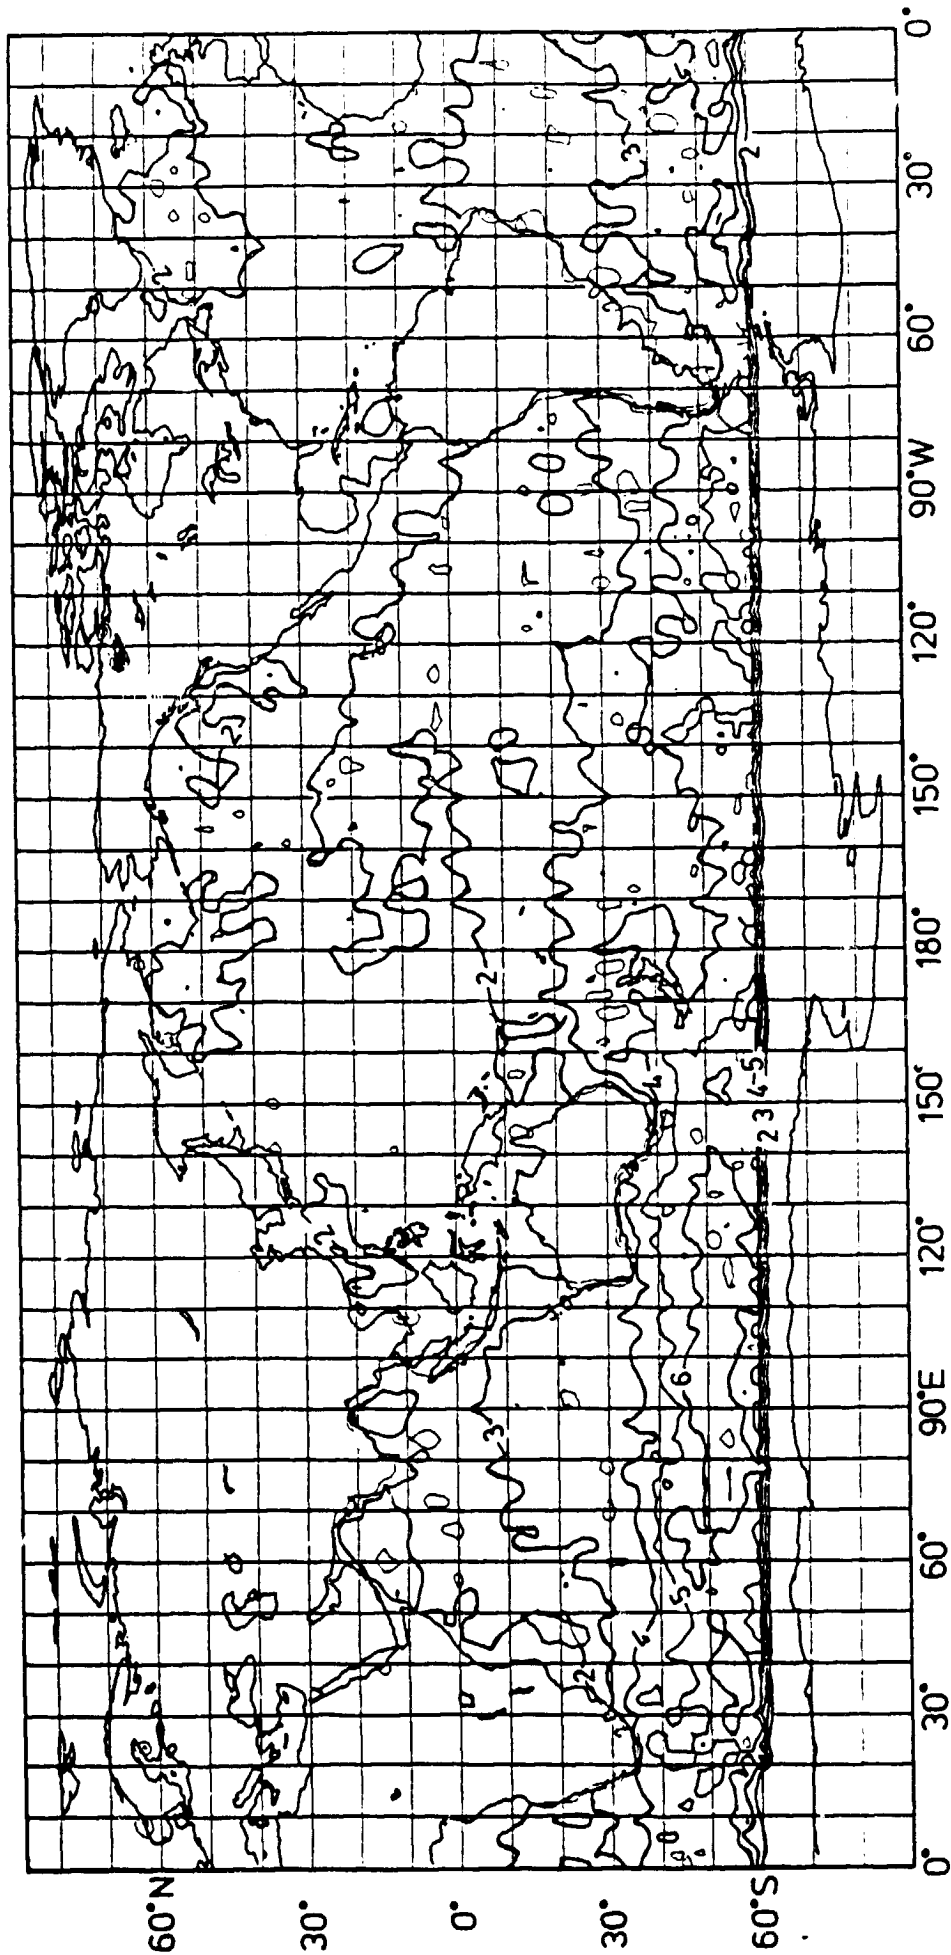 60°N
30°
0°
30°
60°S
0°
30°
60°
90°E
120°
150°
180°
150°
120°
90°W
60°
30°
0°
2
2
2
2
2
2
3
3
4
4
5
6
2 3 4-5